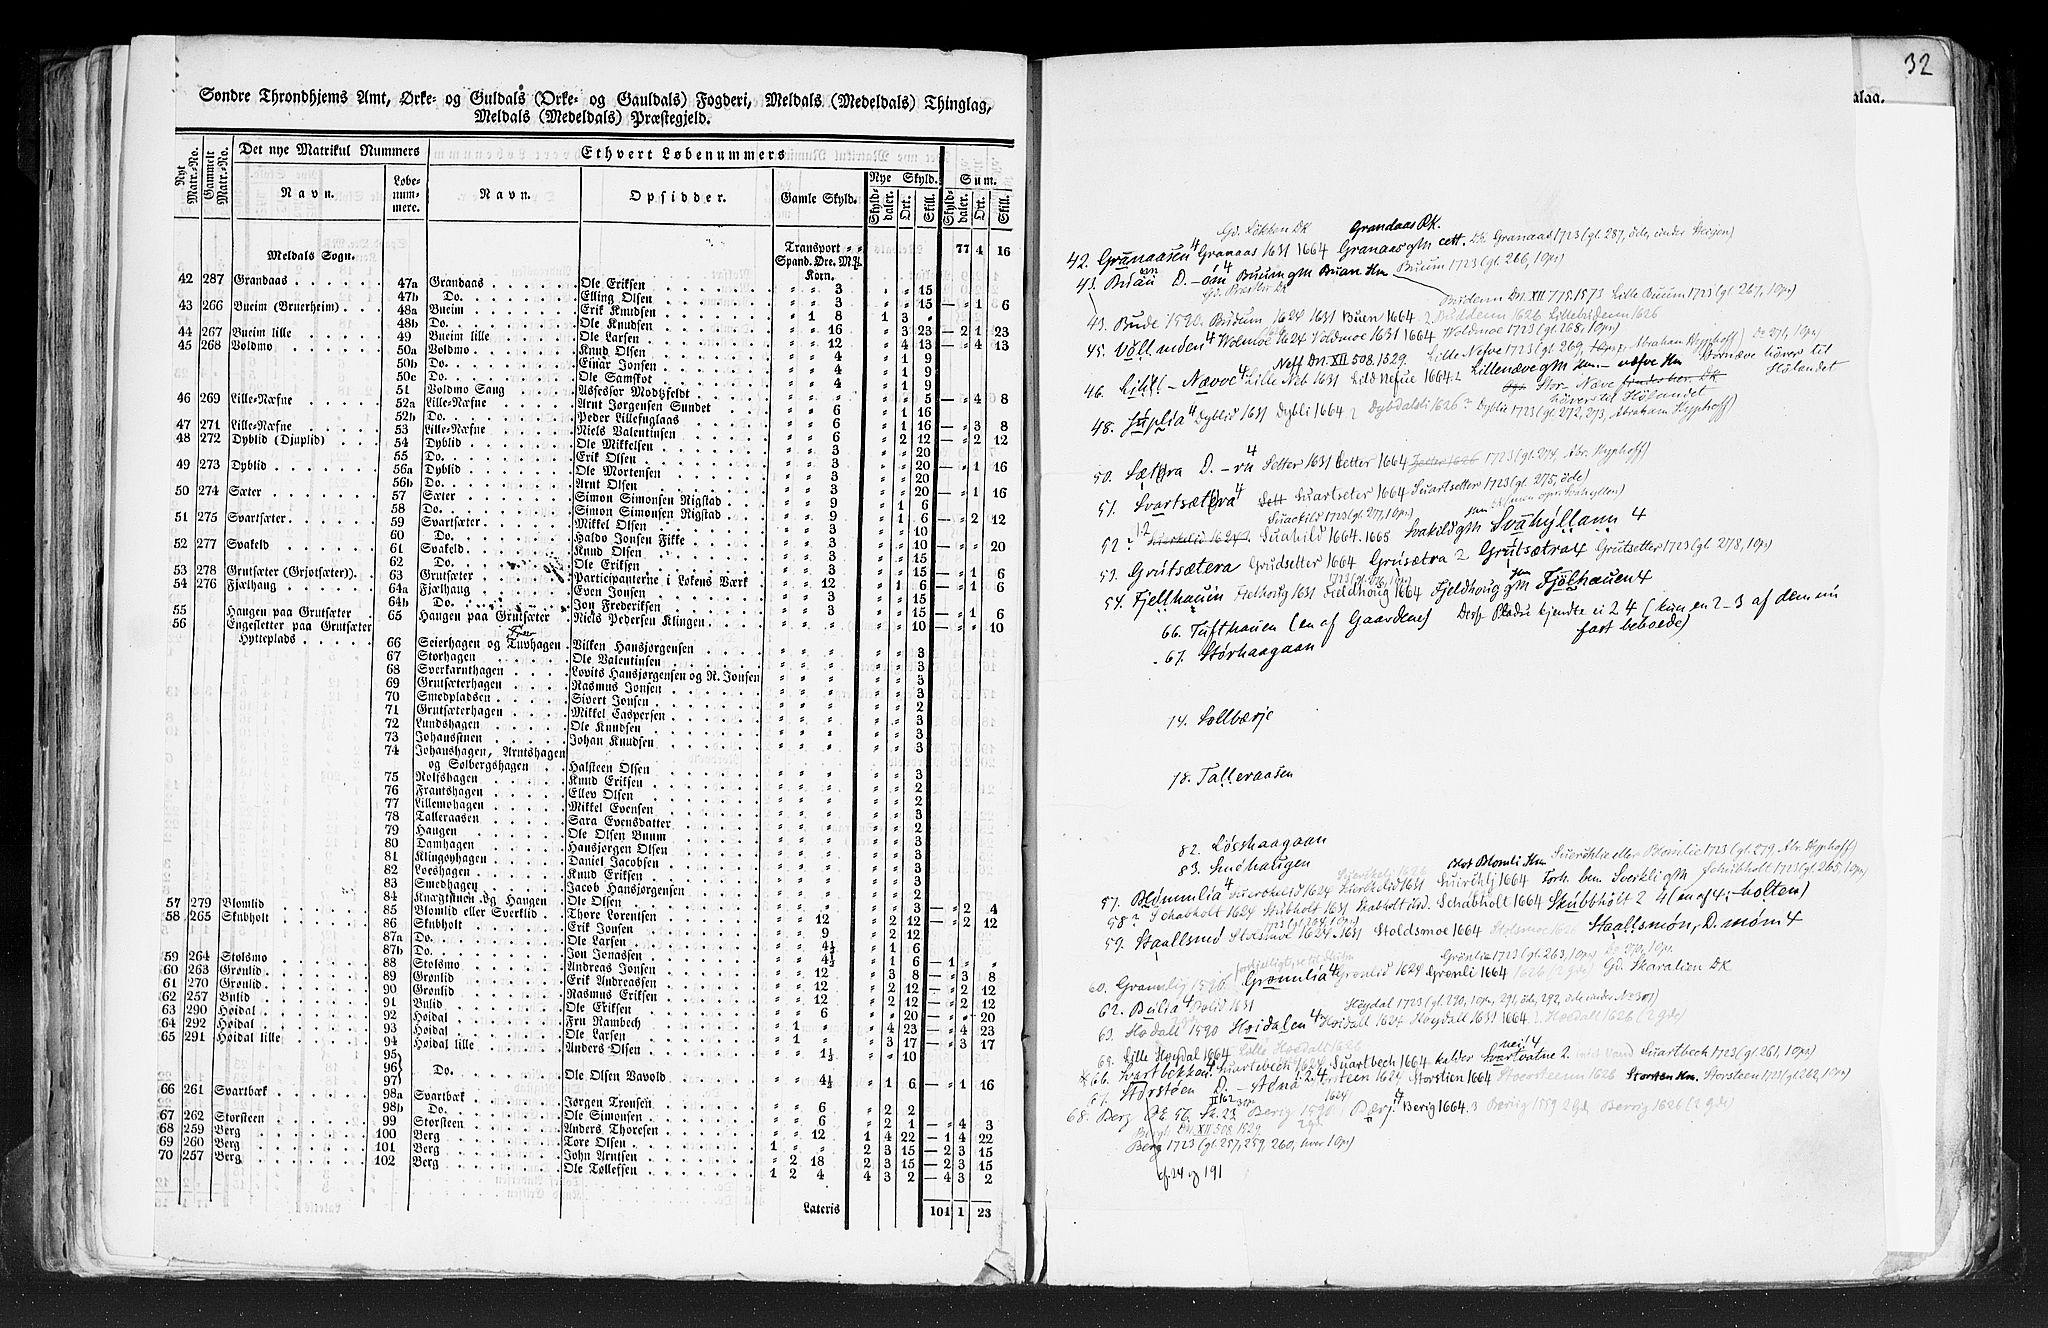 Søndre Throndhjems Amt, Ørke- og Guldals (Orke- og Gauldals) Fogderi, Meldals (Medeldals) Thinglag,
Meldals (Medeldals) Præstegjeld.
Nyt Matr.-No. Gammelt Matr.-No. Det nye Matrikul Nummers Ethvert Løbenummers
Navn. Løbenummere. Navn. Opsidder. Gamle Skyld. Nye Skyld. Sum.
Skylddaler. Ort. Skill. Skylddaler. Ort. Skill.
Transport „ „ 77 4 16
Meldals Sogn. Spand. Øre. Mkl. Korn.
42 287 Grandaas 47a Grandaas Ole Eriksen „ „ 3 „ „ 15
47b Do. Elling Olsen „ „ 3 „ „ 15 — „ 1 6
43 266 Bueim (Bruerheim) 48a Bueim Erik Knudsen „ 1 8 1 3 „
48b Do. Ole Knudsen „ „ 16 „ 3 23 — 2 1 23
44 267 Bueim lille 49 Bueim lille Ole Larsen „ „ 12 „ 4 13 — „ 4 13
45 268 Voldmo 50a Voldmo Knud Olsen „ „ 4 „ 1 9
50b Do. Einar Jonsen „ „ 4 „ 1 9
50c Do. Ole Samskot „ „ 4 „ 1 9
51 Voldmo Sang Assessor Modtzfeldt „ „ „ „ „ 5 — „ 4 8
46 269 Lille-Næfne 52a Lille-Næfne Arnt Jørgensen Sundet „ „ 6 „ 1 16
52b Do. Peder Lillefuglaas „ „ 6 „ 1 16 — „ 3 8
47 271 Lille-Næfne 53 Lille-Næfne Niels Valentinsen „ „ 6 „ 2 12 — „ 2 12
48 272 Dyblid (Djuplid) 54 Dyblid Ole Mikkelsen „ „ 3 „ „ 20
55 Do. Erik Olsen „ „ 3 „ „ 20 — „ 1 16
49 273 Dyblid 56a Dyblid Ole Mortensen „ „ 3 „ „ 20
56b Do. Arnt Olsen „ „ 3 „ „ 20 — „ 1 16
50 274 Sæter 57 Sæter Simon Simonsen Rigstad „ „ 9 „ 1 6
58 Do. Simon Simonsen Rigstad „ „ 9 „ 1 6 — „ 2 12
51 275 Svartsæter 59 Svartsæter Mikkel Olsen „ „ 3 „ „ 10
60 Do. Haldo Jonsen Fikke „ „ 3 „ „ 10 — „ „ 20
52 277 Svakeld 61 Svakeld Knud Olsen „ „ 3 „ „ 15
62 Do. Ole Eriksen „ „ 3 „ „ 15 — „ 1 6
53 278 Grutsæter (Grjotsæter) 63 Grutsæter Participanterne i Løkens Værk „ „ 12 „ 1 6 — „ 1 6
54 276 Fjælhaug 64a Fjælhaug Even Jonsen „ „ 3 „ „ 15
64b Do. Jon Frederiksen „ „ 3 „ „ 15 — „ 1 6
55 Haugen paa Grutsæter 65 Haugen paa Grutsæter Niels Pedersen Klingen „ „ „ „ „ 10 — „ „ 10
56 Engesletter paa Grutsæter
Hytteplads 66 Seierhagen og Tuvhagen Vilken Hansjørgensen „ „ „ „ „ 3
67 Storhagen Ole Valentinsen „ „ „ „ „ 3
68 Sverkarnthagen Lovits Hansjørgensen og N. Jonsen „ „ „ „ „ 3
69 Grutsæterhagen Rasmus Jonsen „ „ „ „ „ 3
70 Smedpladsen Sivert Jonsen „ „ „ „ „ 2
71 Grutsæterhagen Mikkel Caspersen „ „ „ „ „ 3
72 Lundshagen Ole Knudsen „ „ „ „ „ 3
73 Johansstuen Johan Knudsen „ „ „ „ „ 3
74 Johanshagen, Arntshagen
og Solbergshagen Halsteen Olsen „ „ „ „ „ 3
75 Rolfshagen Knud Eriksen „ „ „ „ „ 2
76 Frantshagen Ellev Olsen „ „ „ „ „ 2
77 Lillemohagen Mikkel Evensen „ „ „ „ „ 2
78 Talleraasen Sara Evensdatter „ „ „ „ „ 3
79 Haugen Ole Olsen Buum „ „ „ „ „ 2
80 Damhagen Hansjørgen Olsen „ „ „ „ „ 3
81 Klingenhagen Daniel Jacobsen „ „ „ „ „ 3
82 Loeshagen Knud Eriksen „ „ „ „ „ 2
83 Smedhagen Jacob Hansjørgensen „ „ „ „ „ 2
84 Knægtstuen og Haugen Ole Olsen „ „ „ „ „ 3 — „ 2 4
57 279 Blomlid 85 Blomlid eller Sverklid Thore Lorentsen „ „ 12 „ 2 12 — „ 2 12
58 265 Skubholt 86 Skubholt Erik Jonsen „ „ 9 „ 2 12
87a Do. Ole Larsen „ „ 4½ „ 1 6
87b Do. Jon Jonassen „ „ 4½ „ 1 6 — 1 „ „
59 264 Stolsmo 88 Stolsmo Andreas Jonsen „ „ 12 „ 3 8 — „ 3 8
60 263 Grønlid 89 Grønlid Erik Andreassen „ „ 12 „ 2 12 — „ 2 12
61 270 Grønlid 90 Grønlid Rasmus Eriksen „ „ 12 „ 2 12 — „ 2 12
62 257 Bulid 91 Bulid Ole Eriksen „ „ 6 „ „ 20 — „ „ 20
63 290 Høidal 92 Høidal Fru Rambech „ 1 „ „ 4 23 — „ 4 23
64 292 Høidal 93 Høidal Ole Larsen „ 1 „ „ 3 17 — „ 3 17
65 291 Høidal lille 94 Høidal lille Anders Olsen „ „ 1½ „ „ 10
95
96 Do. Ole Olsen Bavold „ „ 4½ „ 1 6 — „ 1 16
97
66 261 Svartbæk 98a Svartbæk Jørgen Tronsen „ „ 6 „ 2 2
98b Do. Ole Simonsen „ „ 6 „ 2 1 — „ 4 3
67 262 Storsteen 99 Storsteen Anders Thoresen „ „ 12 1 4 22 — 1 4 22
68 259 Berg 100 Berg Tore Olsen 1 „ „ 2 3 15 — 2 3 15
69 260 Berg 101 Berg John Arntsen „ 2 18 2 3 15 — 2 3 15
70 257 Berg 102 Berg Ole Tollefsen 1 2 4 4 3 2 — 4 3 2
Lateris 101 1 23
32
alag.
Gd. Løkken DK Grandaas DK.
42. Granaasen 4 Granaas 1631 1664 Granaas gM cett. DK Granaas 1723 (gl. 287, øde, under Skrojen)
Buum gM Buan Hn Buum 1723 (gl. 266, 1 ops)
Budemn Dn. XII 775. 1573 Lille Buum 1723 (gl. 267, 1 ops)
43. Bude 1590. Budum 1624 1631 Büen 1664. 2 Buddemn 1626 Lillebudemn 1626
45. Vollmden 4 Wolmoe 1624 Voldmoe 1631 1664 Woldmoe 1723 (gl. 268, 1 ops)
Neff Dn. XII 508. 1529. Lille Nefve 1723 (gl. 269, Abraham Hyphoff) Do 271, 1 ops)
46. Litl- Nævve 4 Lille Neb 1631 Lild Nefue 1664. 2 Lillenæve gM Hn. — næfve Hn Stornæve hører til Hølandet
Stor Næve
hører til Hølandet
48. Juplia 4 Dyblid 1631 Dybli 1664 2 Dybdalsli 1626? Dyblie 1723 (gl. 272, 273, Abraham Hyphoff)
50. Sætra D. - rn 4 Setter 1631 Setter 1664 Zetter 1626 1723 (gl. 274, Abr. Hyphoff)
51. Svartsætra 4 Sett Suartseter 1664 Suartsetter 1723 (gl. 275, øde)
Suackild 1723 (gl. 277, 1 ops)
52. Suakild 1664. 1668 Svakild gM Svahyllann 4
53. Grutsætera Grudsetter 1664 Grusætra 2 Grutsætra 4 Grutsetter 1723 (gl. 278, 1 ops)
54. Fjellhauen Fielhoug 1631 Fieldhoug 1664 Fjeldhoug gM Fjølhauen 4
66. Tufthauen (en af Gaardene) Desse Pladse kjendte ei 2 4 (kun en 2-3 af dem nu
fast beboede)
67. Storhaagaan
74. Sollbærje
78. Talleraasen
82. Løsshaagaan
83. Smedhaugen
Blot Blomli Hn Suerchlie eller Blomlie 1723 (gl. 279, Abr. Hyphoff)
57. Blommlia 4 Suerckelid 1624 1631 Suirchlj 1664 Torh. ben. Sverkli gM Schubholt 1723 (gl. 265, 1 ops)
58? Schabholt 1624 Skubholt 1631 Schabholt 1664 Skubbholt 2 4 (en af 4: -holten)
59. Staallsmo Stolsmoe 1624. 1631 Stoldsmoe 1664 Stolsmoe 1626 Staallsmon, D. mom 4
Grønlie 1723 (gl. 263, 1 ops) Do 270, 1 ops.
60. Grannlig 1590. Grønnlia 4 Grønlid 1624 Grønli 1664 1626 (2 gde) Gd. Skaralien DK
62. Bulia 4 Bolid 1631 Høydal 1723 (gl. 290, 1 ops, 291, øde, 292, øde under No 301)
63. Hødall 1590 Høidalen 4 Høidall 1624 Høydall 1631 1664 2 Høedall 1626 (2 gde)
65. Lille Høydal 1664 Lille Høedall 1626
66. Svartbekken 4 Suartebech 1624 Suartbech 1664 kalder Svartvatne 2. Suartbech 1723 (gl. 261, 1 ops)
67. Storstøen D. - støna 1. 2. 4 Storsteen 1624 Storstien 1664 Stoersteenn 1626 Storsten Hn. Storsteen 1723 (gl. 262, 1 ops)
68. Berg OE 56. Sk. 23 Berig 1590 Bærj 4 Berig 1664. 3 Berrig 1559 2 gde Berrig 1626 (2 gde)
Bergh Dn. XII 508. 1529
Berg 1723 (gl. 257, 259, 260, hver 1 ops)
cf. 24 og 191